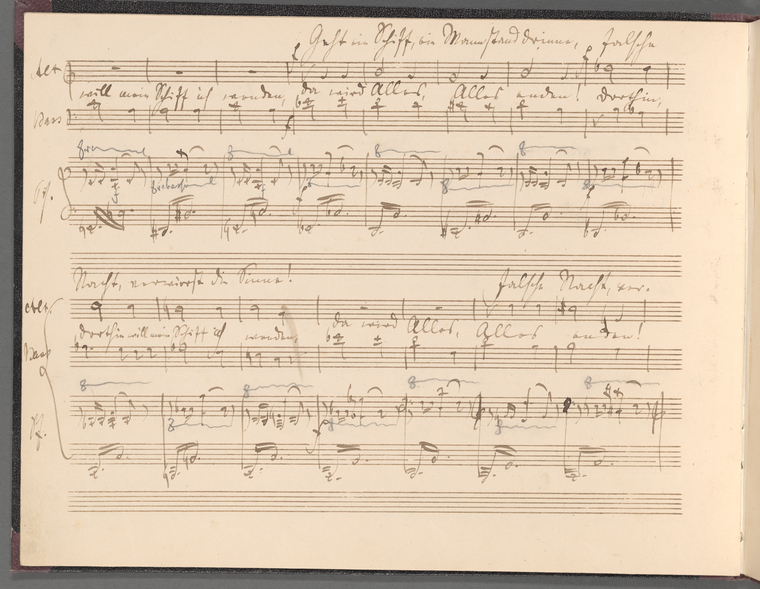 Geht ein Schiff, ein Mann stand drinne, Falsche
Alt
will mein Schiff ich wenden, da wird Alles, Alles enden! Dorthin,
Bass
Pf.
Nacht, verwirrst die Sinne! Falsche Nacht, ver-
Alt
dorthin will mein Schiff ich wenden, da wird Alles, Alles enden!
Bass
Pf.